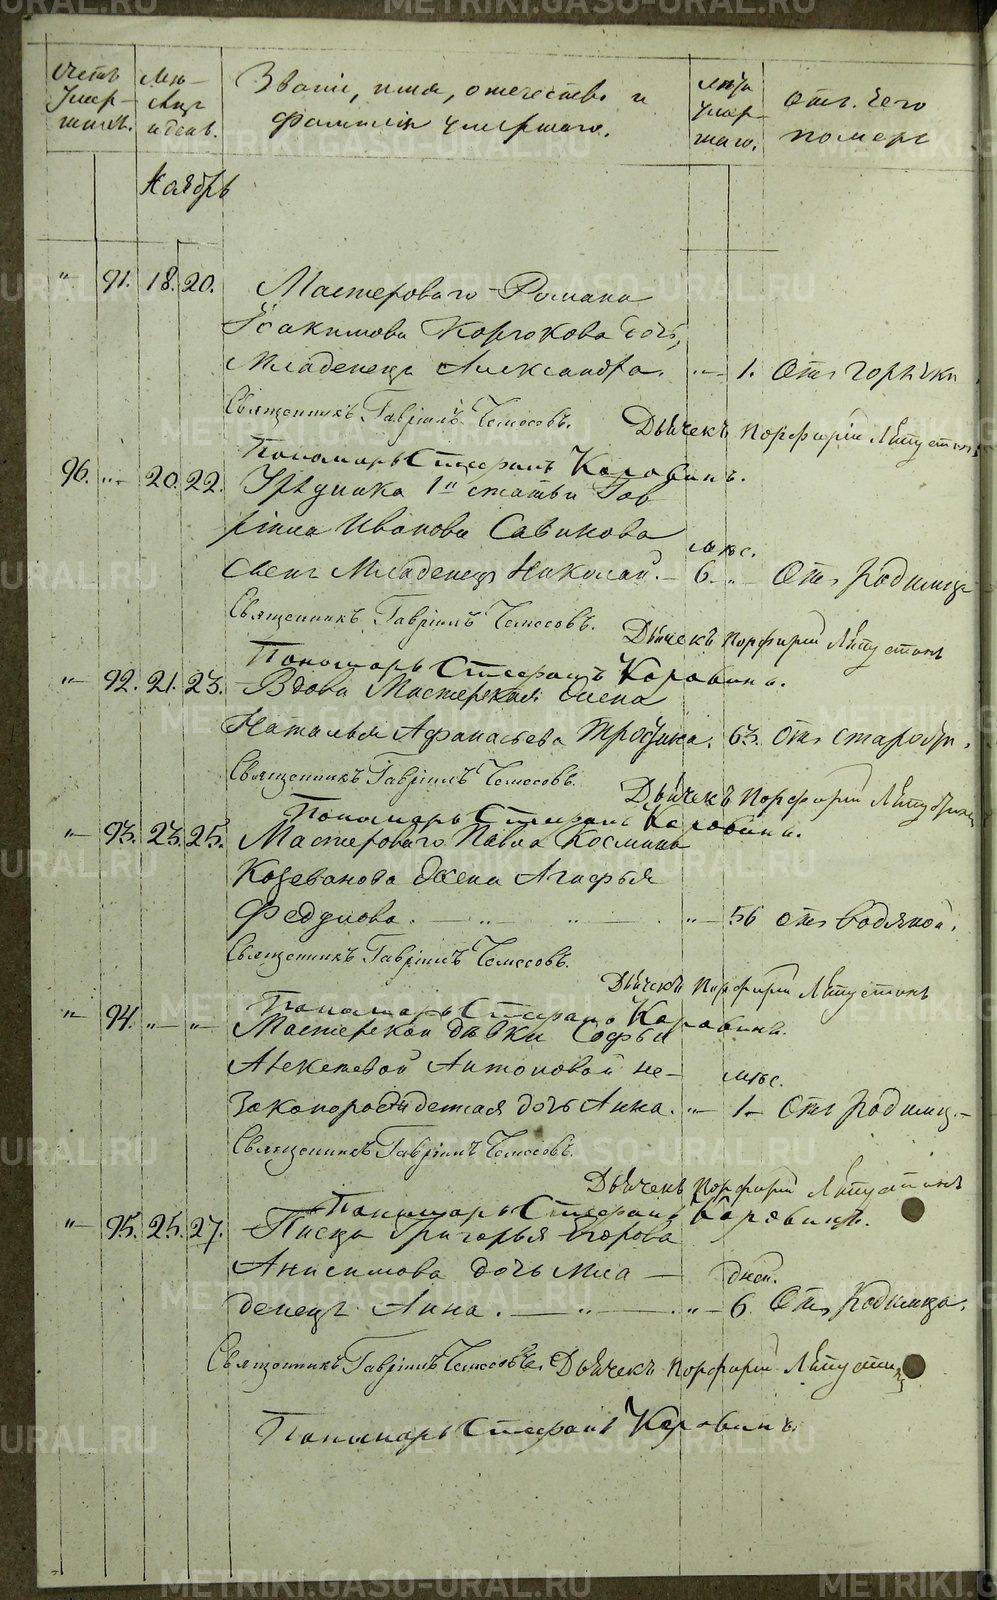 Счетъ умер- шихъ.
Мѣ- сяцъ и день.
Званіе, имя, отечество и
фамилія умершаго.
лѣта умер- шаго.
отъ чего
померъ
Ноябрь
" 91. 18. 20. Мастероваго Романа
Іоакимова Коргокова дочь,
Младенецъ Александра. "– 1. Отъ горячки
Священникъ Гавріилъ Чемесовъ. Дьячекъ Порфирій
Пономарь Стефанъ Коровинъ.
96. " 20. 22. Урядника 1й статьи Гав
ріила Иванова Савикова
мѣс.
сынъ Младенецъ Николай. – 6. " Отъ родимца
Священникъ Гавріилъ Чемесовъ. Дьячекъ Порфирій
Пономарь Стефанъ Коровинъ.
" 92. 21. 23. Вдова Мастерская жена
Наталья Афанасьева 63. Отъ старости.
Священникъ Гавріилъ Чемесовъ. Дьячекъ Порфирій
Пономарь Стефанъ Коровинъ.
" 93. 23. 25. Мастероваго Павла Космина
Козеванова жена Агафья
Федулова. – " " " – 56 отъ водяной.
Священникъ Гавріилъ Чемесовъ.
Дьячекъ Порфирій
Пономарь Стефанъ Коровинъ.
" 94. " " Мастерской дѣвки Софьи
Алексѣевой Антоновой не-
мѣс.
законорожденная дочь Анна. "– 1– Отъ родимц.–
Священникъ Гавріилъ Чемесовъ.
Дьячекъ Порфирій
Пономарь Стефанъ Коровинъ.
" 95. 25. 27. Писца Григорья Егорова
Анисимова дочь мла – дней.
денецъ Анна. – " – "– 6. Отъ родимца.
Священникъ Гавріилъ Чемесовъ. Дьячекъ Порфирій
Пономарь Стефанъ Коровинъ.
METRIKI.GASO-URAL.RU